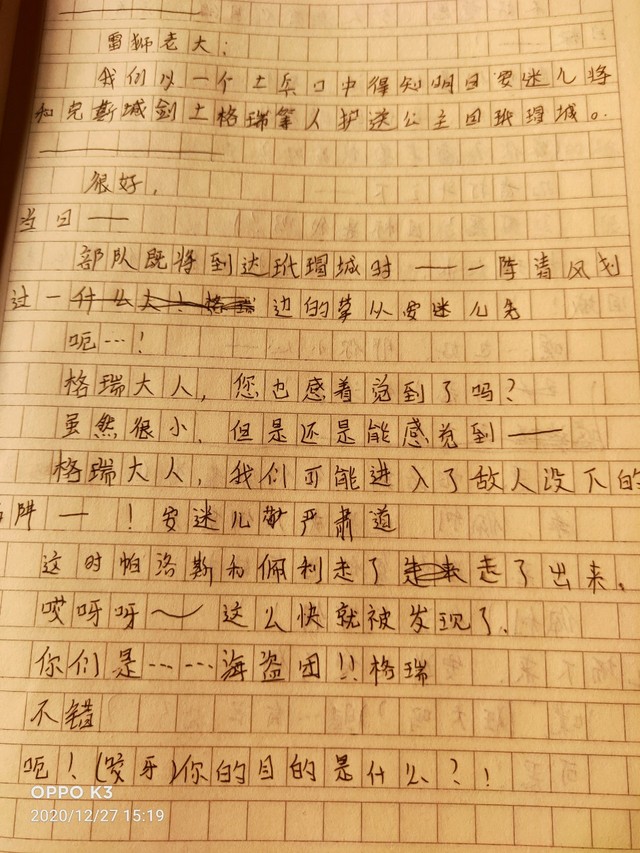 雷狮老大:
我们从一个士兵口中得知明日安迷儿将
和克斯城剑士格瑞等人护送公主回玳瑁城。
很好,
当日——
部队既将到达玳瑁城时——一阵清风划
过一边的草从安迷儿先
呃…!
格瑞大人,您也感着觉到了吗?
虽然很小,但是还是能感觉到——
格瑞大人,我们可能进入了敌人没下的
阱—!安迷儿严肃道
这时帕洛斯和佩利走了走了出来。
哎呀呀~这么快就被发现了.
你们是……海盗团!!格瑞
不错
呃!(咬牙)你的目的是什么?!
OPPO K3
2020/12/27 15:19